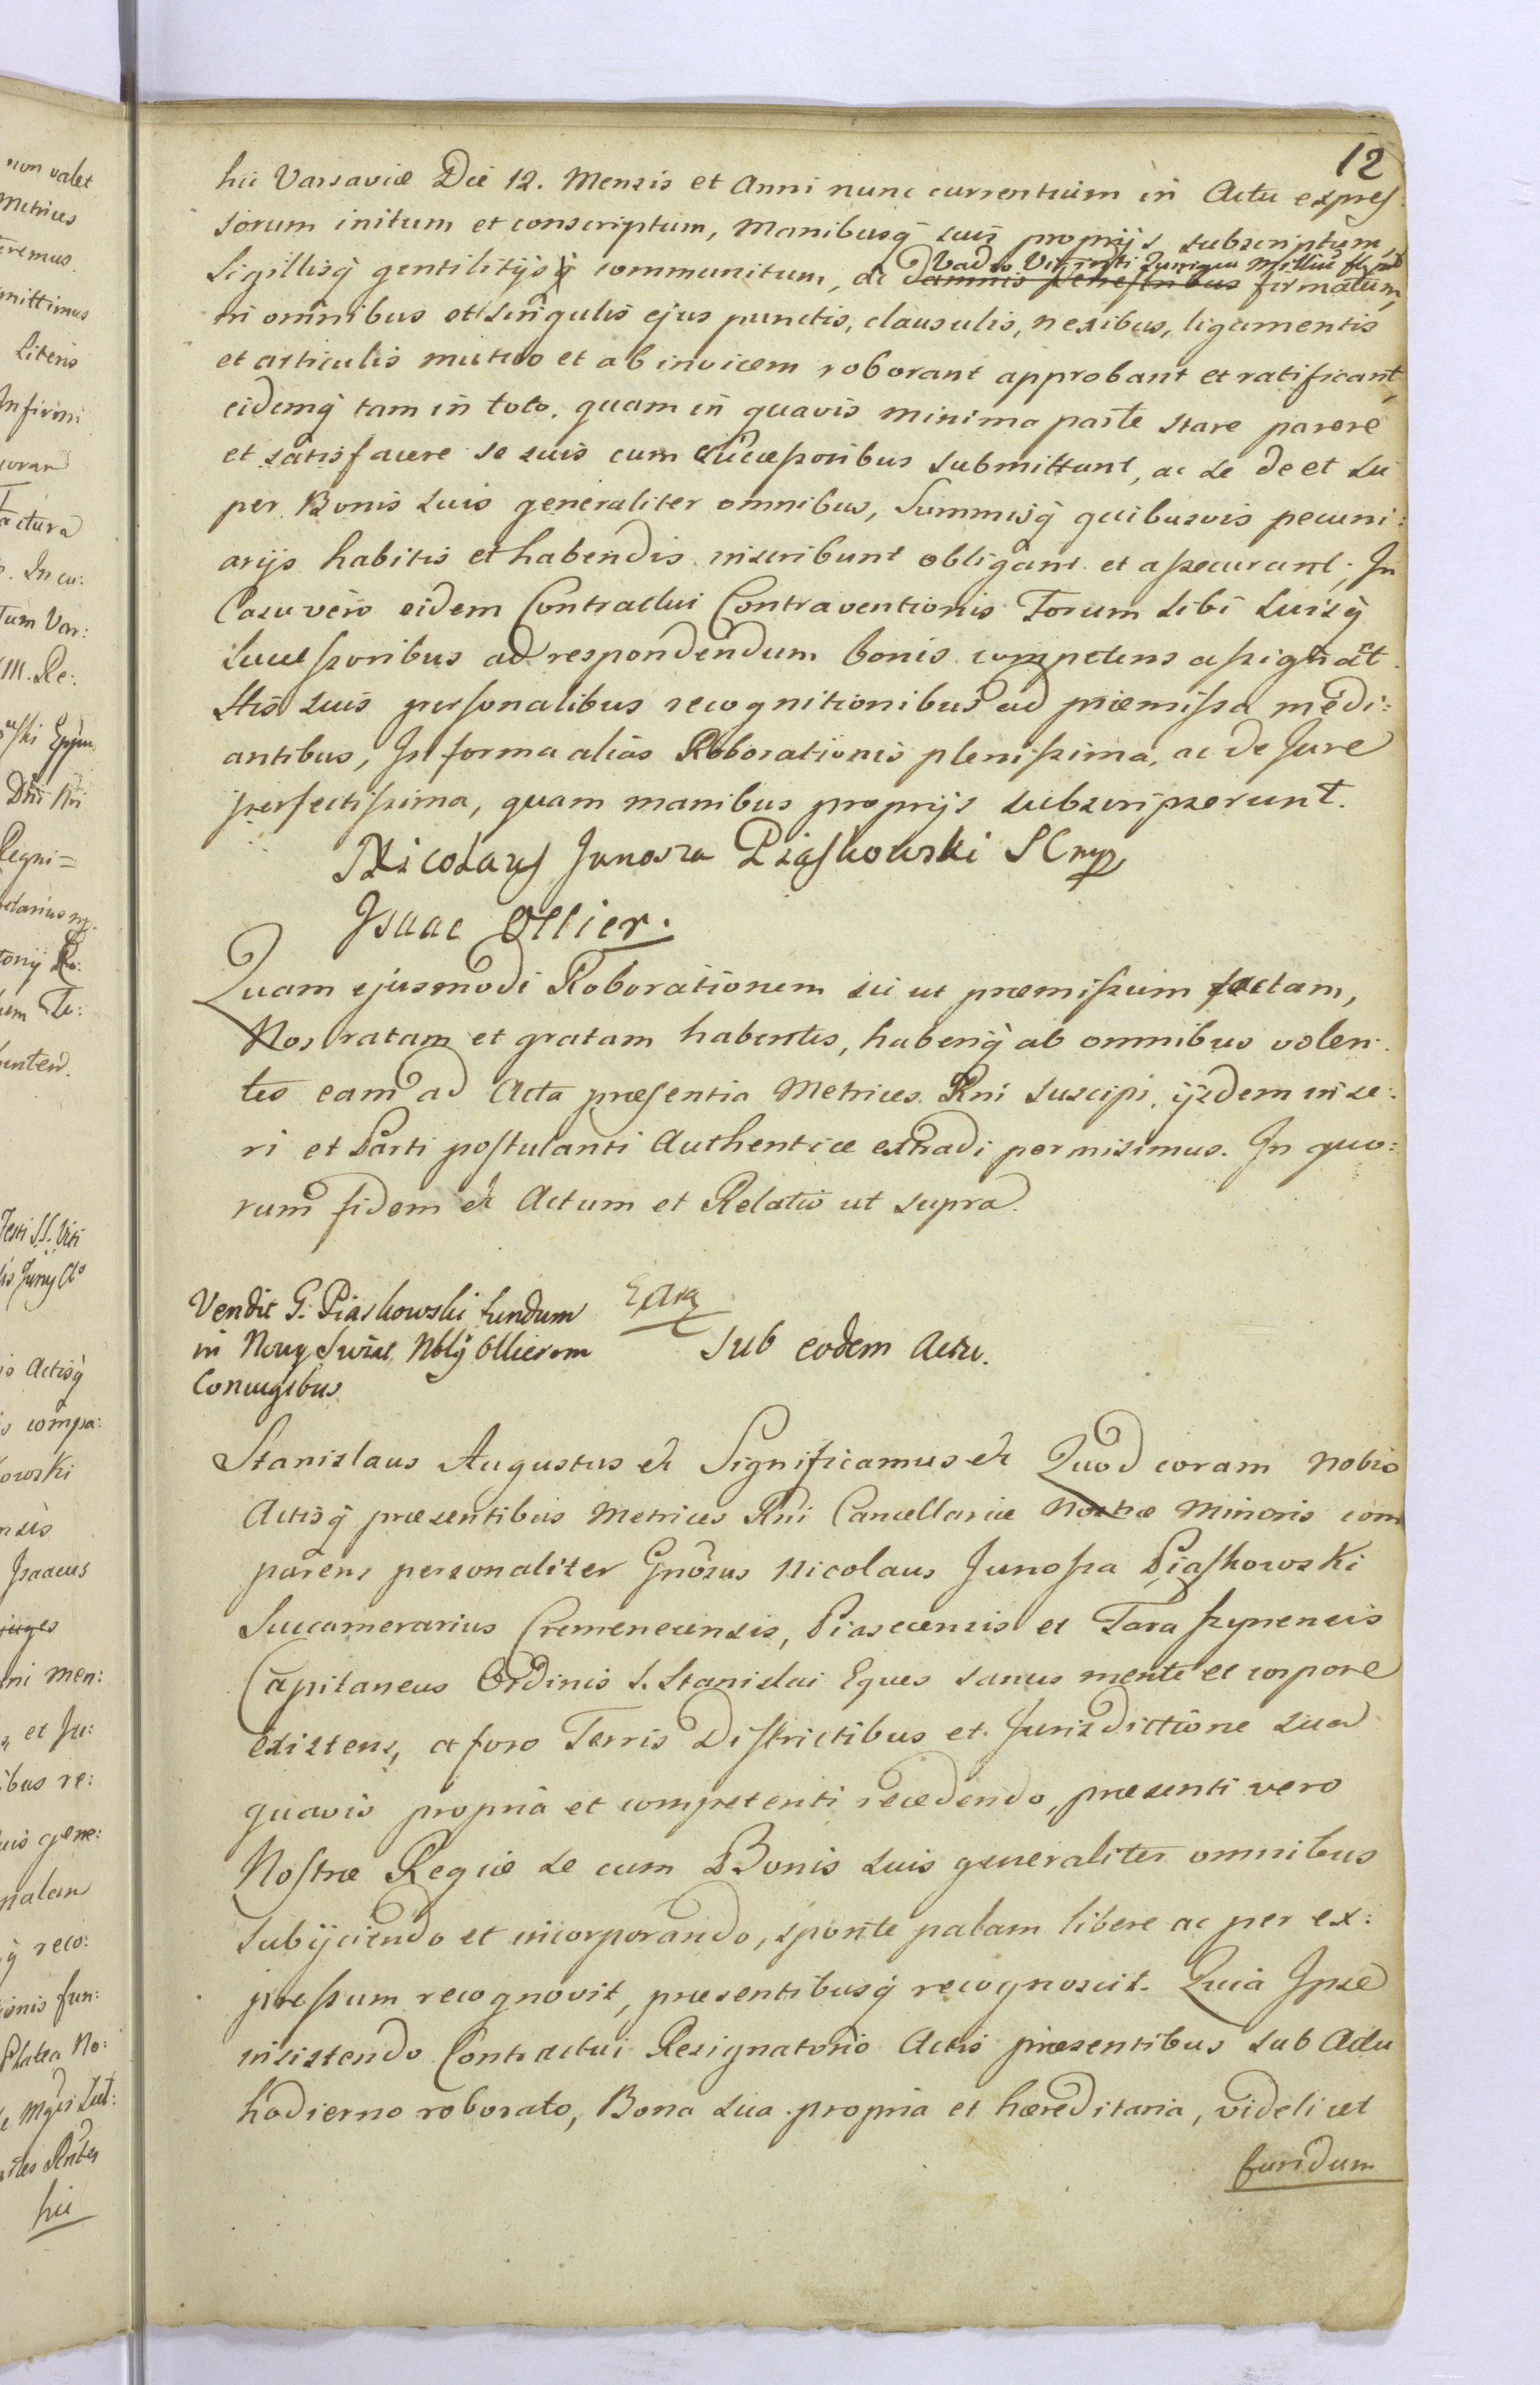 12
hic Varsaviæ Die 12. Mensis et Anni nunc currentium in Actu expres
sorum initum et conscriptum, Manibusq̃ suis proprijs subscriptum,
Sigillisq̃ gentilitijs communitum, ac Vadio Viginti Quinque Millium fl. pol.
damnis terrestribus firmatum,
in omnibus et singulis ejus punctis, clausulis, nexibus, ligamentis
et articulis mutuo et ab invicem roborant approbant et ratificant,
eidemq̃ tam in toto, quam in quavis minima parte stare parere
et satisfacere se suis cum Succeſsoribus submittunt, ac se de et su
per Bonis suis generaliter omnibus, Summisq̃ quibusvis pecuni:
arijs habitis et habendis inscribunt obligant et aſsecurant; In
Casu vero eidem Contractui Contraventionis Forum sibi suisq̃
Succeſsoribus ad respondendum bonis competens aſsignant.
Stis suis perſonalibus recognitionibus ad præmiſsa medi:
antibus, In forma alias Roborationis pleniſsima, ac de Jure
perfectiſsima, quam manibus proprijs subscripserunt.
Nicolaus Junosza Piaskowski SKmp
Isaac Ollier.
Quam ejusmodi Roborationem sic ut præmiſsum factam,
Nos ratam et gratam habentes, haberiq̃ ab omnibus volen:
tes eam ad Acta præſentia Metrices Rni suscipi, ijsdem inse:
ri et Parti poſtulanti Authentice extradi permisimus. In quo:
rum fidem et Actum et Relatio ut supra.
Vendit G. Piaskowski fundum
in Nowy Swiat Nblq̃ Ollierom
Conjugibus
Extra
Sub eodem Actu.
Stanislaus Augustus et Significamus et Quod coram Nobis
Actisq̃ præsentibus Metrices Rni Cancellariæ Noſtræ Minoris com
parens personaliter Gnosus Nicolaus Junoſza Piaſkowski
Succamerarius Cremenecensis, Piasecensis et Taraſzynensis
Capitaneus Ordinis S. Stanislai Eques sanus mente et corpore
existens, a foro Terris Diſtrictibus et Jurisdictione sua
quavis propria et competenti recedendo, præsenti vero
Noſtræ Regiæ se cum Bonis suis generaliter omnibus
subijciendo et incorporando, sponte palam libere ac per ex:
preſsum recognovit, præsentibusq̃ recognoscit. Quia Ipse
insistendo Contractui Resignatorio Actis præsentibus sub Actu
hodierno roborato, Bona sua propria et hæreditaria, videlicet
fundum